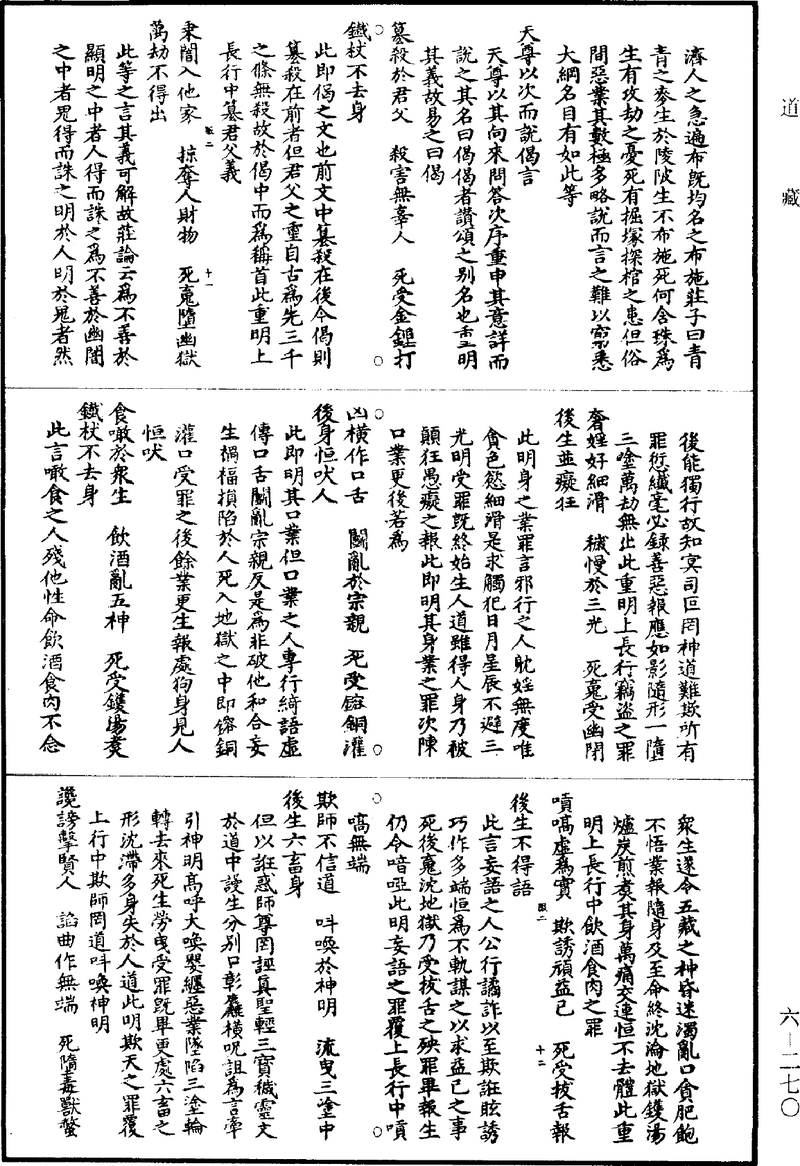 道 藏
六—二七〇
濟人之急遍布旣均名之布施莊子曰青
青之麥生於陵陂生不布施死何含珠爲
生有攻劫之憂死有掘塚探棺之患但俗
間惡業其數極多略說而言之難以窮悉
大綱名目有如此等
天尊以次而說偈言
天尊以其向來問答次序重申其意詳而
說之其名曰偈偈者讚頌之别名也重明
其義故易之曰偈
篡殺於君父 殺害無辜人 死受金鎚打
鐵杖不去身
此即偈之文也前文中篡殺在後今偈則
篡殺在前者但君父之重自古爲先三千
之條無殺故於偈中而爲稱首此重明上
長行中篡君父義
秉闇入他家 掠奪人財物 死䰟墮幽獄
萬劫不得出
此等之言其義可解故莊論云爲不善於
顯明之中者人得而誅之爲不善於幽闇
之中者鬼得而誅之明於人明於鬼者然
後能獨行故知冥司叵罔神道難欺所有
罪愆纖毫必録善惡報應如影隨形一墮
三塗萬劫無出此重明上長行竊盜之罪
奢婬好細滑 穢慢於三光 死䰟受幽閉
後生並癡狂
此明身之業罪言邪行之人躭婬無度唯
貪色慾細滑是求觸犯日月星辰不避三
光明受罪旣終始生人道雖得人身乃被
顛狂愚癡之報此即明其身業之罪次陳
口業更後若爲
凶横作口舌 鬭亂於宗親 死受鎔銅灌
後身恒吠人
此即明其口業但口業之人專行綺語虚
傳口舌鬭亂宗親反是爲非破他和合妄
生禍福損陷於人死入地獄之中即鎔銅
灌口受罪之後餘業更生報處狗身見人
恒吠
食噉於衆生 飲酒亂五神 死受鑊湯煑
鐵杖不去身
此言噉食之人殘他性命飲酒食肉不念
衆生遂令五藏之神昏迷濁亂口貪肥飽
不悟業報隨身及至命終沈淪地獄鑊湯
爐炭煎煑其身萬痛交連恒不去體此重
明上長行中飲酒食肉之罪
嘖嗃虚爲實 欺誘碩益己 死受拔舌報
後生不得語
此言妄語之人公行譎詐以至欺誑眩誘
巧作多端恒爲不軌謀之以求益己之事
死後䰟沈地獄乃受拔舌之殃罪畢報生
仍令喑啞此明妄語之罪覆上長行中嘖
嗃無端
欺師不信道 呌喚於神明 流曳三塗中
後生六畜身
但以誑惑師尊罔誣眞聖輕三寶穢靈文
於道中謾生分别只彰麤横呪詛爲言牽
引神明髙呼大喚嬰纏惡業墜陷三塗輪
轉去來死生勞曳受罪旣畢更處六畜之
形沈滯多身失於人道此明欺天之罪覆
上行中欺師罔道呌喚神明
讒謗擊賢人 諂曲作無端 死墮毒獸螫